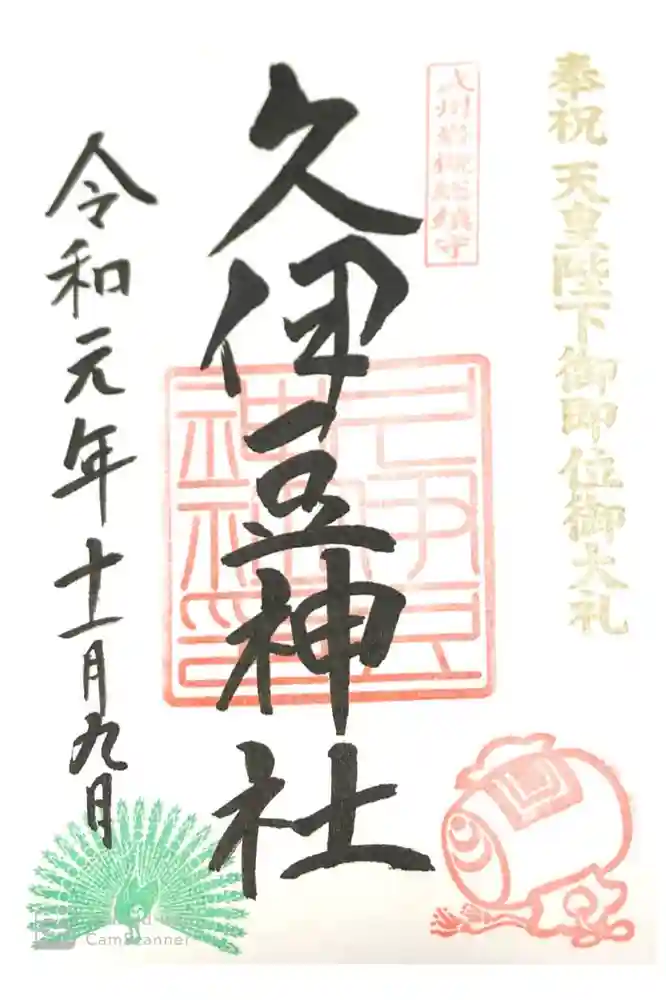 奉祝 天皇陛下御即位御大礼
武州岩槻総鎮守
久伊豆神社
令和元年十一月九日
CamScanner